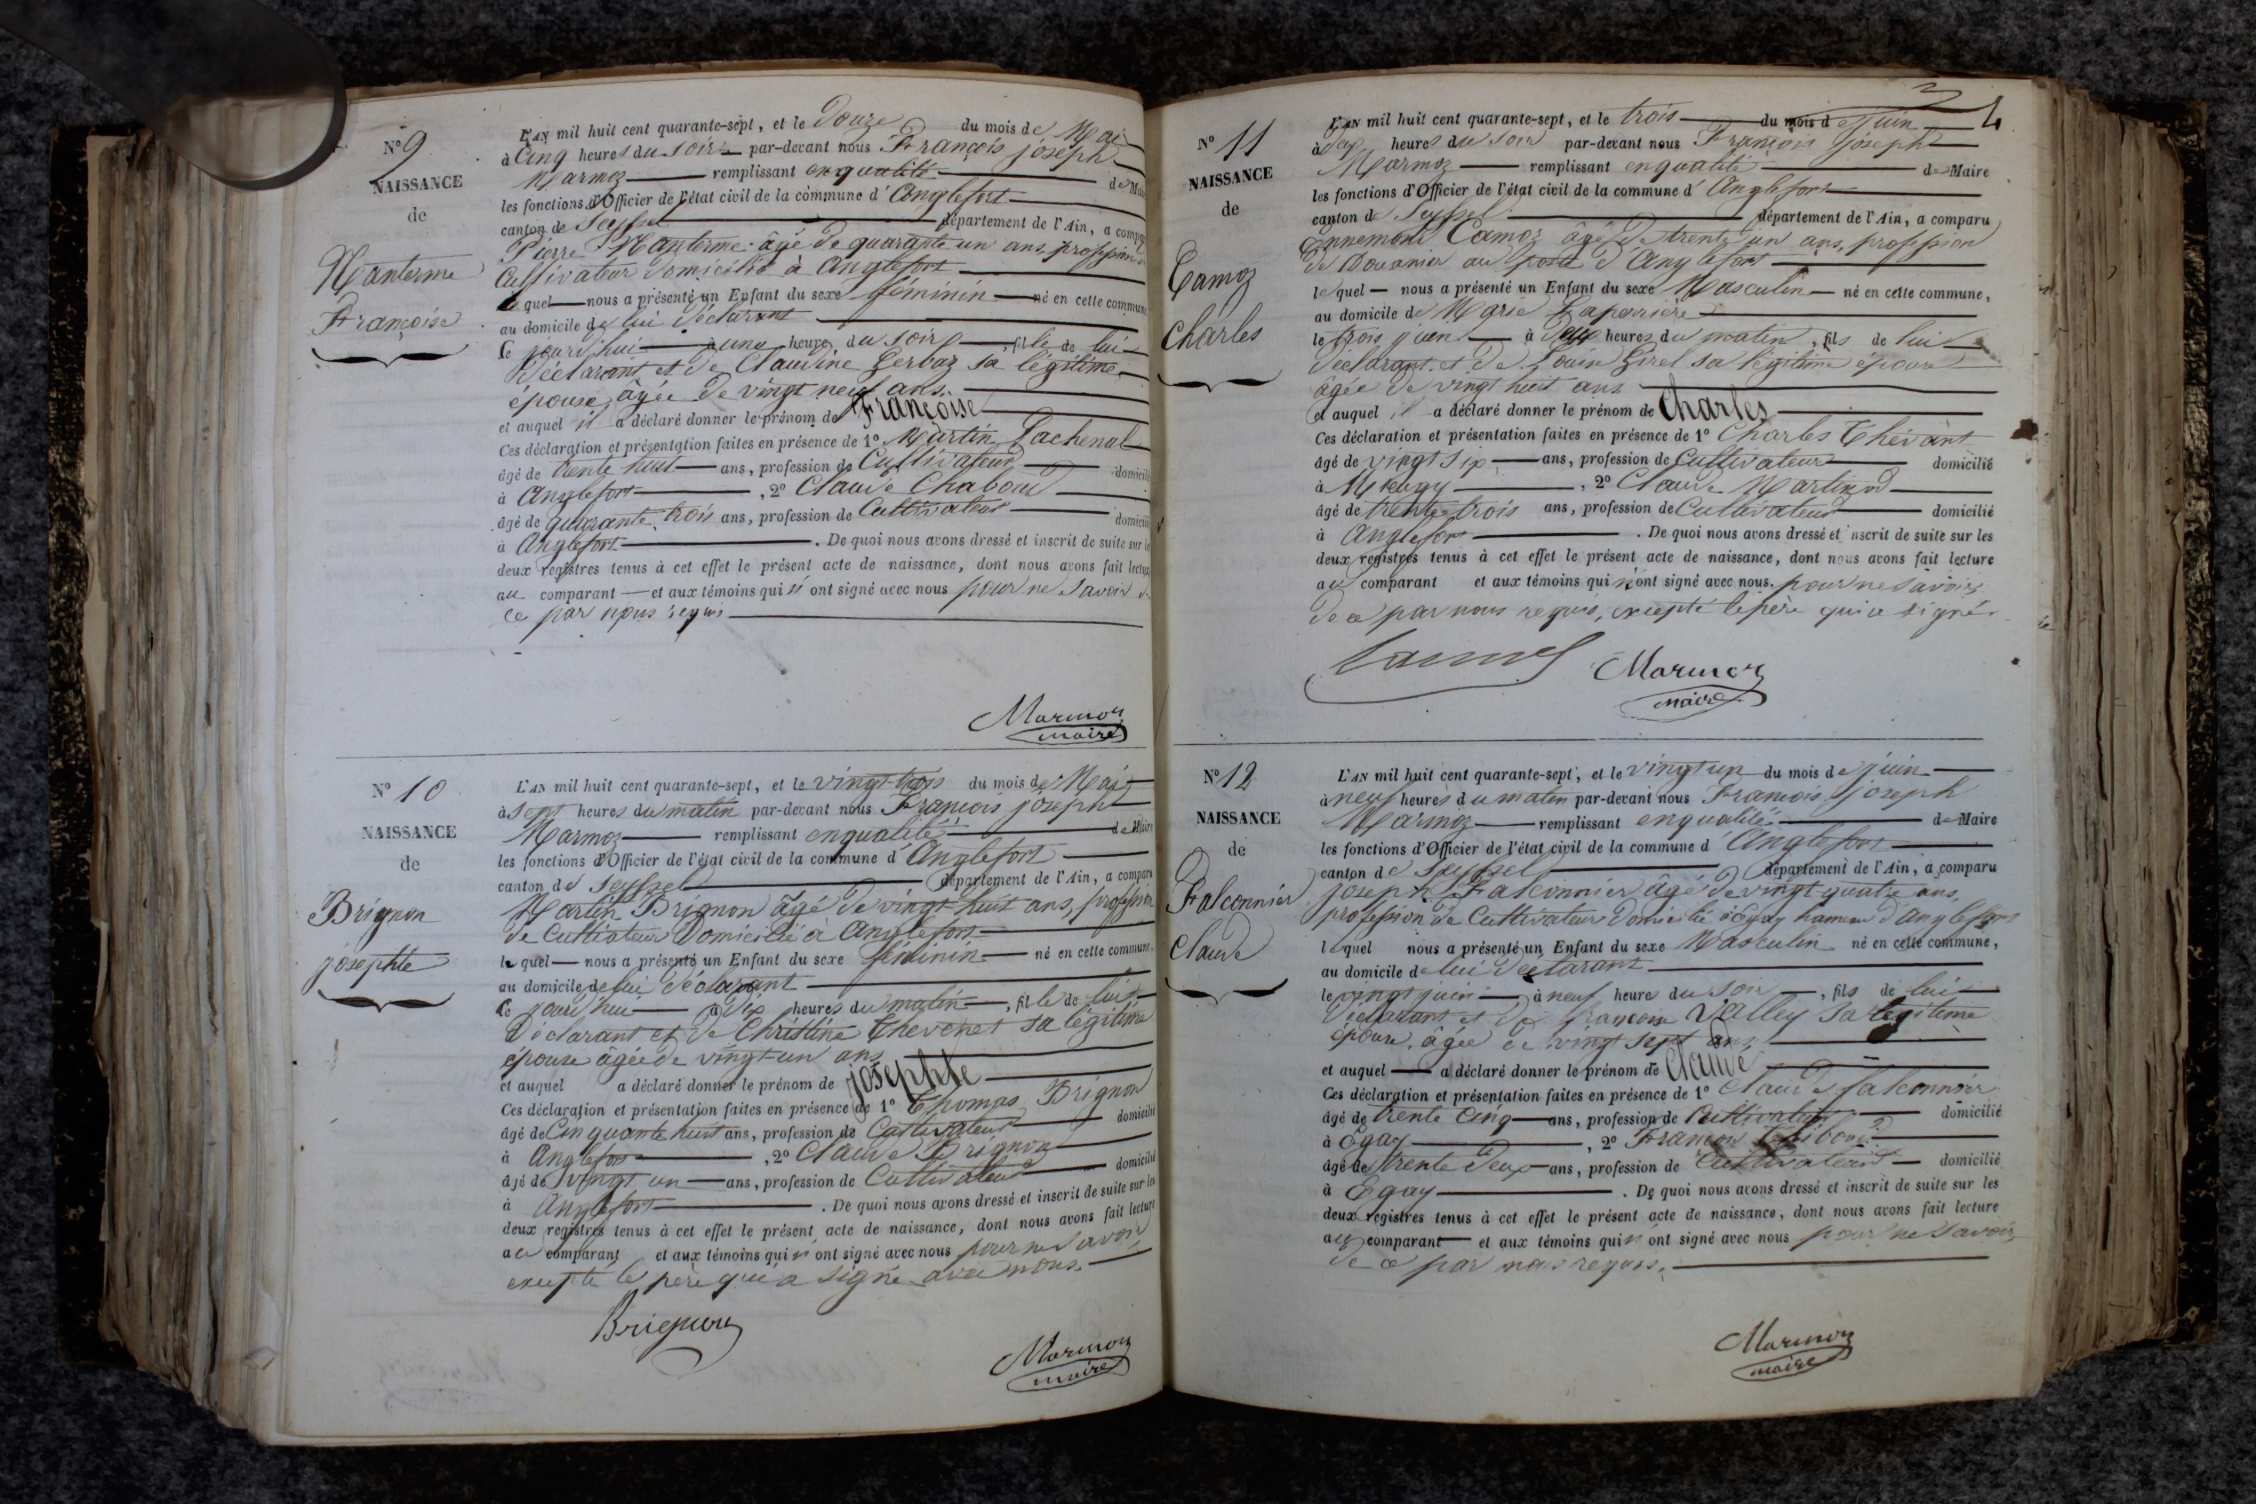 N° 9
NAISSANCE
de
Nanterme
Françoise
L'AN mil huit cent quarante-sept, et le Douze du mois de Mai
à Cinq heures du soir par-devant nous François joseph
Marmoz remplissant en qualité de Maire
les fonctions d'Officier de l'état civil de la commune d'Anglefort
canton de Seyssel département de l'Ain, a comparu
Pierre Nanterme âgé de quarante un ans, profession de
Cultivateur domicilié à Anglefort
lequel nous a présenté un Enfant du sexe féminin né en cette commune
au domicile de lui déclarant
ce jourd'hui à une heure du soir, fille de lui
Déclarant et de Claudine Gerbaz sa légitime
épouse, âgée de vingt neuf ans.
et auquel il a déclaré donner le prénom de Françoise
Ces déclaration et présentation faites en présence de 1° Martin Lachenal
âgé de trente huit ans, profession de Cultivateur domicilié
à Anglefort, 2° Claude Chaboud
âgé de quarante trois ans, profession de Cultivateur domicilié
à Anglefort. De quoi nous avons dressé et inscrit de suite sur les
deux registres tenus à cet effet le présent acte de naissance, dont nous avons fait lecture
au comparant et aux témoins qui n'ont signé avec nous pour ne savoir de
ce par nous requis
Marmoz
maire
N° 10
NAISSANCE
de
Brignon
josephte
L'AN mil huit cent quarante-sept, et le vingt-trois du mois de Mai
à sept heures du matin par-devant nous François joseph
Marmoz remplissant en qualité de Maire
les fonctions d'Officier de l'état civil de la commune d'Anglefort
canton de Seyssel département de l'Ain, a comparu
Martin Brignon âgé de vingt huit ans, profession
de Cultivateur Domicilié à Anglefort
lequel nous a présenté un Enfant du sexe féminin né en cette commune,
au domicile de lui déclarant
ce jourd'hui à dix heures du matin, fille de lui
Déclarant et de Christine Thevenet sa légitime
épouse âgée de vingt un ans
et auquel a déclaré donner le prénom de josephte
Ces déclaration et présentation faites en présence de 1° Thomas Brignon
âgé de Cinquante huit ans, profession de Cultivateur domicilié
à Anglefort, 2° Claude Brignon
âgé de vingt un ans, profession de Cultivateur domicilié
à Anglefort. De quoi nous avons dressé et inscrit de suite sur les
deux registres tenus à cet effet le présent acte de naissance, dont nous avons fait lecture
au comparant et aux témoins qui n'ont signé avec nous pour ne savoir,
excepté le père qui a signé avec nous.
Brignon
Marmoz
maire
4
N° 11
NAISSANCE
de
Camoz
Charles
L'AN mil huit cent quarante-sept, et le trois du mois de juin
à Six heures du soir par-devant nous François joseph
Marmoz remplissant en qualité de Maire
les fonctions d'Officier de l'état civil de la commune d'Anglefort
canton de Seyssel département de l'Ain, a comparu
Ennemond Camoz âgé de trente un ans, profession
de Douanier au poste d'Anglefort
lequel nous a présenté un Enfant du sexe Masculin né en cette commune,
au domicile de Marie Laperrière
le trois juin à Deux heures du matin, fils de lui
déclarant et de Louise Girel sa légitime épouse
âgée de vingt huit ans
et auquel il a déclaré donner le prénom de Charles
Ces déclaration et présentation faites en présence de 1° Charles Thévant
âgé de vingt six ans, profession de Cultivateur domicilié
à, 2° Claude Martinod
âgé de trente trois ans, profession de Cultivateur domicilié
à Anglefort. De quoi nous avons dressé et inscrit de suite sur les
deux registres tenus à cet effet le présent acte de naissance, dont nous avons fait lecture
au comparant et aux témoins qui n'ont signé avec nous. pour ne savoir,
de ce par nous requis, excepté le père qui a signé.
Camoz
Marmoz
maire
N° 12
NAISSANCE
de
Falconnier
Claude
L'AN mil huit cent quarante-sept, et le vingt un du mois de juin
à neuf heures du matin par-devant nous François joseph
Marmoz remplissant en qualité de Maire
les fonctions d'Officier de l'état civil de la commune d'Anglefort
canton de Seyssel département de l'Ain, a comparu
joseph Falconnier âgé de vingt quatre ans,
profession de Cultivateur Domicilié à Egay hameau d'Anglefort
lequel nous a présenté un Enfant du sexe Masculin né en cette commune,
au domicile de lui Déclarant
le vingt juin à neuf heures du soir, fils de lui
Déclarant et de françoise Valley sa légitime
épouse, âgée de vingt sept ans
et auquel a déclaré donner le prénom de Claude
Ces déclaration et présentation faites en présence de 1° Claude falconnier
âgé de trente cinq ans, profession de Cultivateur domicilié
à Egay, 2° François
âgé de trente deux ans, profession de Cultivateur domicilié
à Egay. De quoi nous avons dressé et inscrit de suite sur les
deux registres tenus à cet effet le présent acte de naissance, dont nous avons fait lecture
au comparant et aux témoins qui n'ont signé avec nous pour ne savoir,
de ce par nous requis.
Marmoz
maire